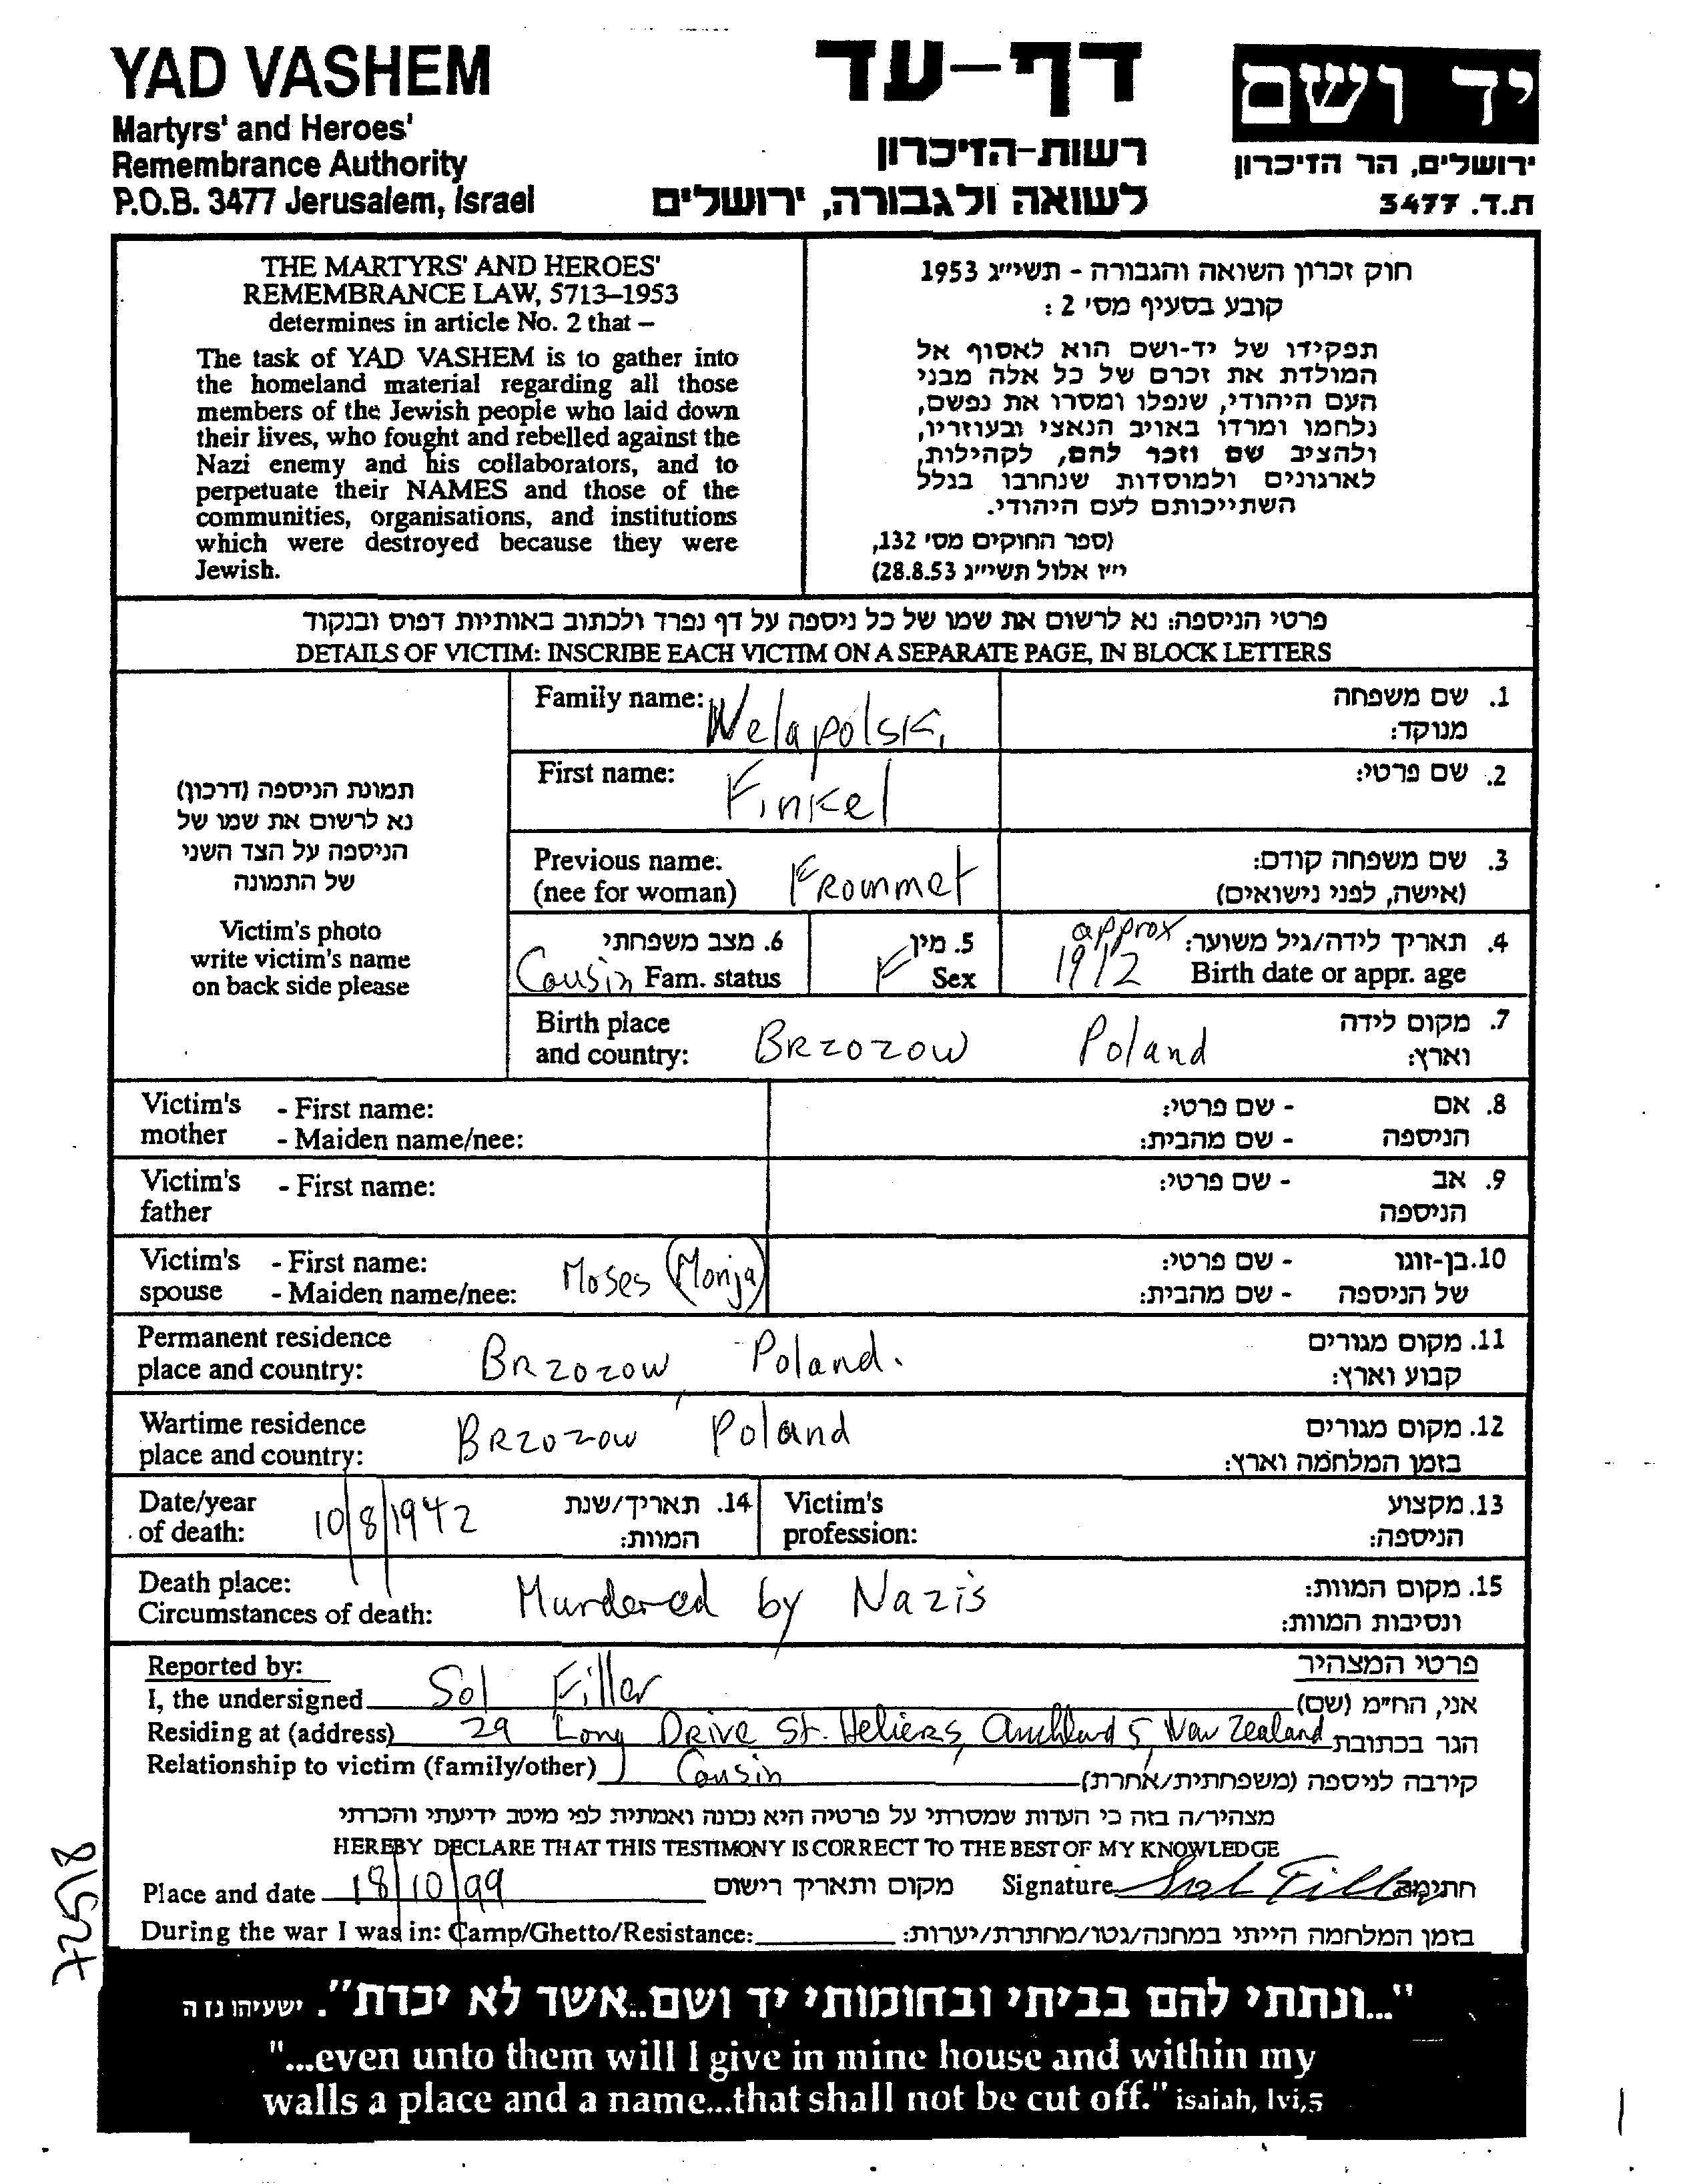 YAD VASHEM
Martyrs' and Heroes'
Remembrance Authority
P.O.B. 3477 Jerusalem, Israel
דף-עד
רשות-הזיכרון
לשואה ולגבורה, ירושלים
יד ושם
ירושלים, הר הזיכרון
ת.ד. 3477
THE MARTYRS' AND HEROES'
REMEMBRANCE LAW, 5713–1953
determines in article No. 2 that –
The task of YAD VASHEM is to gather into
the homeland material regarding all those
members of the Jewish people who laid down
their lives, who fought and rebelled against the
Nazi enemy and his collaborators, and to
perpetuate their NAMES and those of the
communities, organisations, and institutions
which were destroyed because they were
Jewish.
חוק זכרון השואה והגבורה - תשי״ג 1953
קובע בסעיף מס׳ 2 :
תפקידו של יד-ושם הוא לאסוף אל
המולדת את זכרם של כל אלה מבני
העם היהודי, שנפלו ומסרו את נפשם,
נלחמו ומרדו באויב הנאצי ובעוזריו,
ולהציב שם וזכר להם, לקהילות,
לארגונים ולמוסדות שנחרבו בגלל
השתייכותם לעם היהודי.
(ספר החוקים מס׳ 132,
י״ז אלול תשי״ג 28.8.53)
פרטי הניספה: נא לרשום את שמו של כל ניספה על דף נפרד ולכתוב באותיות דפוס ובנקוד
DETAILS OF VICTIM: INSCRIBE EACH VICTIM ON A SEPARATE PAGE, IN BLOCK LETTERS
תמונת הניספה (דרכון)
נא לרשום את שמו של
הניספה על הצד השני
של התמונה
Victim's photo
write victim's name
on back side please
Family name: Welapolski
1. שם משפחה
מנוקד:
First name: Finkel
2. שם פרטי:
Previous name: Frommet
(nee for woman)
3. שם משפחה קודם:
(אישה, לפני נישואים)
6. מצב משפחתי
Cousin Fam. status
5. מין
F Sex
4. תאריך לידה/גיל משוער: approx
1912 Birth date or appr. age
Birth place
and country: BRZOZOW Poland
7. מקום לידה
וארץ:
Victim's - First name:
mother - Maiden name/nee:
8. אם - שם פרטי:
הניספה - שם מהבית:
Victim's - First name:
father
9. אב - שם פרטי:
הניספה
Victim's - First name:
spouse - Maiden name/nee: Moses (Monja)
10. בן-זוגו - שם פרטי:
של הניספה - שם מהבית:
Permanent residence
place and country: BRZOZOW, Poland.
11. מקום מגורים
קבוע וארץ:
Wartime residence
place and country: BRZOZOW Poland
12. מקום מגורים
בזמן המלחמה וארץ:
Date/year
of death: 10/8/1942
14. תאריך/שנת
המוות:
Victim's
profession:
13. מקצוע
הניספה:
Death place:
Circumstances of death: Murdered by Nazis
15. מקום המוות:
ונסיבות המוות:
Reported by:
פרטי המצהיר
I, the undersigned Sol Filler אני, הח״מ (שם)
Residing at (address) 29 Long Drive St. Heliers, Auckland 5, New Zealand הגר בכתובת
Relationship to victim (family/other) Cousin קירבה לניספה (משפחתית/אחרת)
מצהיר/ה בזה כי העדות שמסרתי על פרטיה היא נכונה ואמתית לפי מיטב ידיעתי והכרתי
HEREBY DECLARE THAT THIS TESTIMONY IS CORRECT TO THE BEST OF MY KNOWLEDGE
Place and date 18/10/99 מקום ותאריך רישום Signature Sol Filler חתימה
During the war I was in: Camp/Ghetto/Resistance: בזמן המלחמה הייתי במחנה/גטו/מחתרת/יערות:
72518
"...ונתתי להם בביתי ובחומותי יד ושם..אשר לא יכרת". ישעיהו נו ה
"...even unto them will I give in mine house and within my
walls a place and a name...that shall not be cut off." isaiah, lvi,5